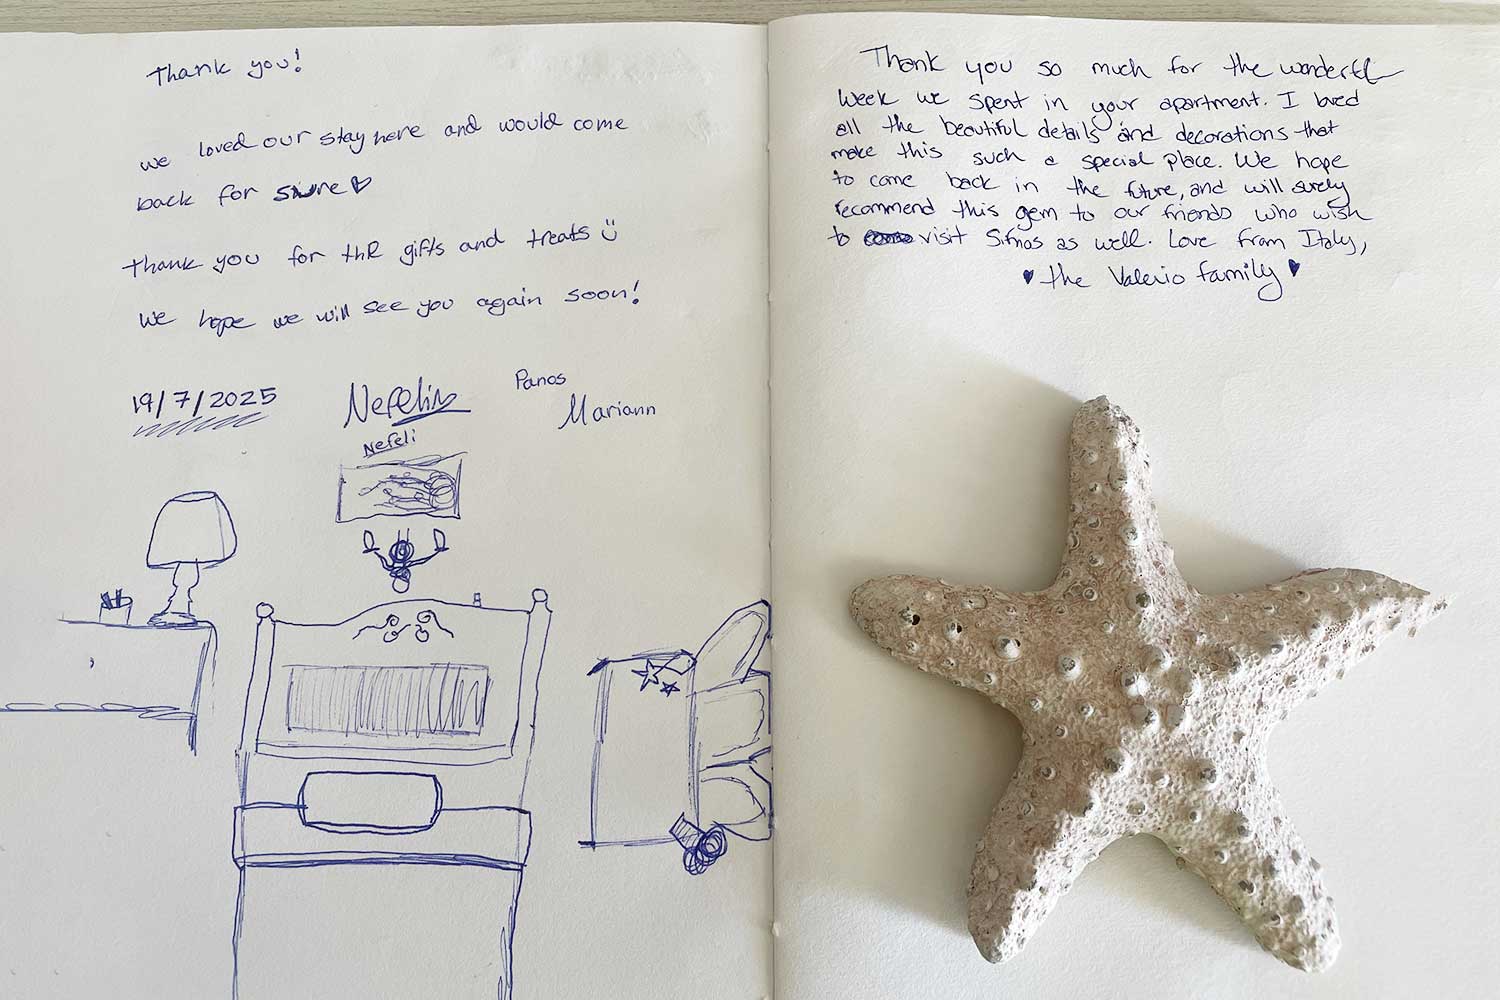 Thank you!
we loved our stay here and would come
back for sure♡
Thank you for the gifts and treats ü
We hope we will see you again soon!
19/7/2025
Nefelin
Nefeli
Panos
Mariann
Thank you so much for the wonderful
week we spent in your apartment. I loved
all the beautiful details and decorations that
make this such a special place. We hope
to come back in the future, and will surely
recommend this gem to our friends who wish
to visit Sifnos as well. Love from Italy,
♥ the Valerio family ♥